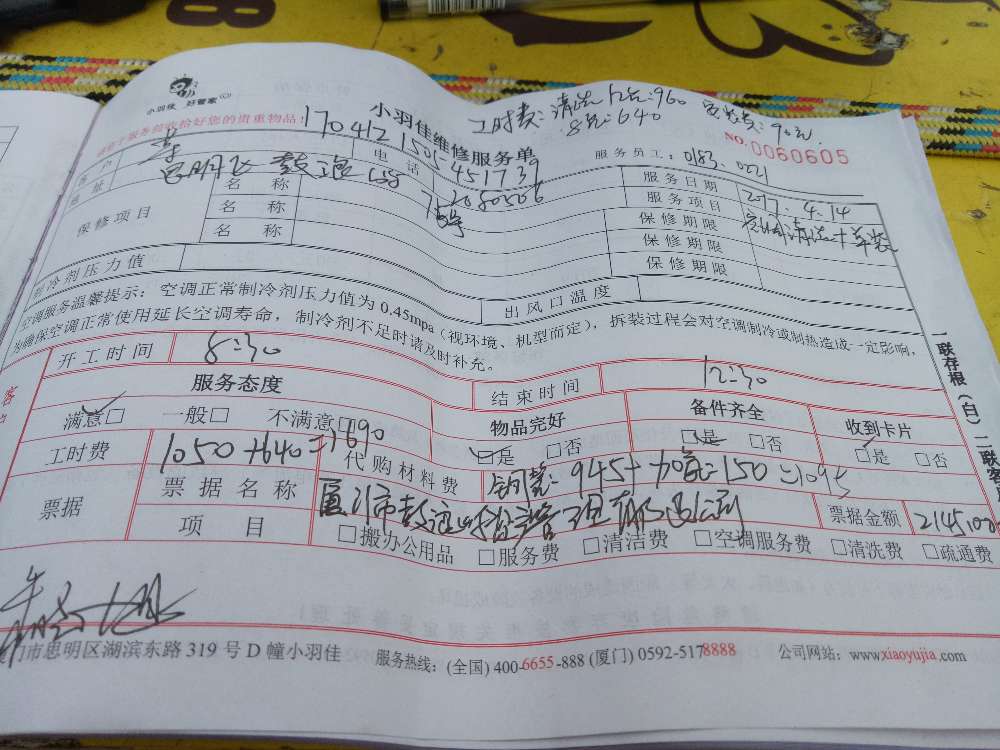 小羽佳 好管家
工时费：清洗12台：960 安装费：90元
8台：640
小羽佳维修服务单
NO. 0060605
请在了服务前收拾好您的贵重物品！
170412 1505 451739
服务员工：0183. 0221
客户 李 电话 2080506
地址 思明 鼓 158 75号
服务日期 2017. 4. 14
保修项目 名称 服务项目 空调清洗+安装
名称 保修期限
名称 保修期限
保修期限
制冷剂压力值 出风口温度
空调服务温馨提示：空调正常制冷剂压力值为0.45mpa（视环境、机型而定），拆装过程会对空调制冷或制热造成一定影响，
为确保空调正常使用延长空调寿命，制冷剂不足时请及时补充。
开工时间 8:30 结束时间 12:30
服务态度 物品完好 备件齐全 收到卡片
满意□ 一般□ 不满意□ □是 □否 □是 □否 □是 □否
工时费 1050+640=1690 代购材料费 铜管：945+加氟：150=1095
票据 票据名称 厦门市 管理有限公司 票据金额 2145.00
项目 □搬办公用品 □服务费 □清洁费 □空调服务费 □清洗费 □疏通费
一联存根（白）二联客
门市思明区湖滨东路 319 号 D 幢小羽佳 服务热线：(全国) 400-6655-888 (厦门) 0592-5178888 公司网站：www.xiaoyujia.com